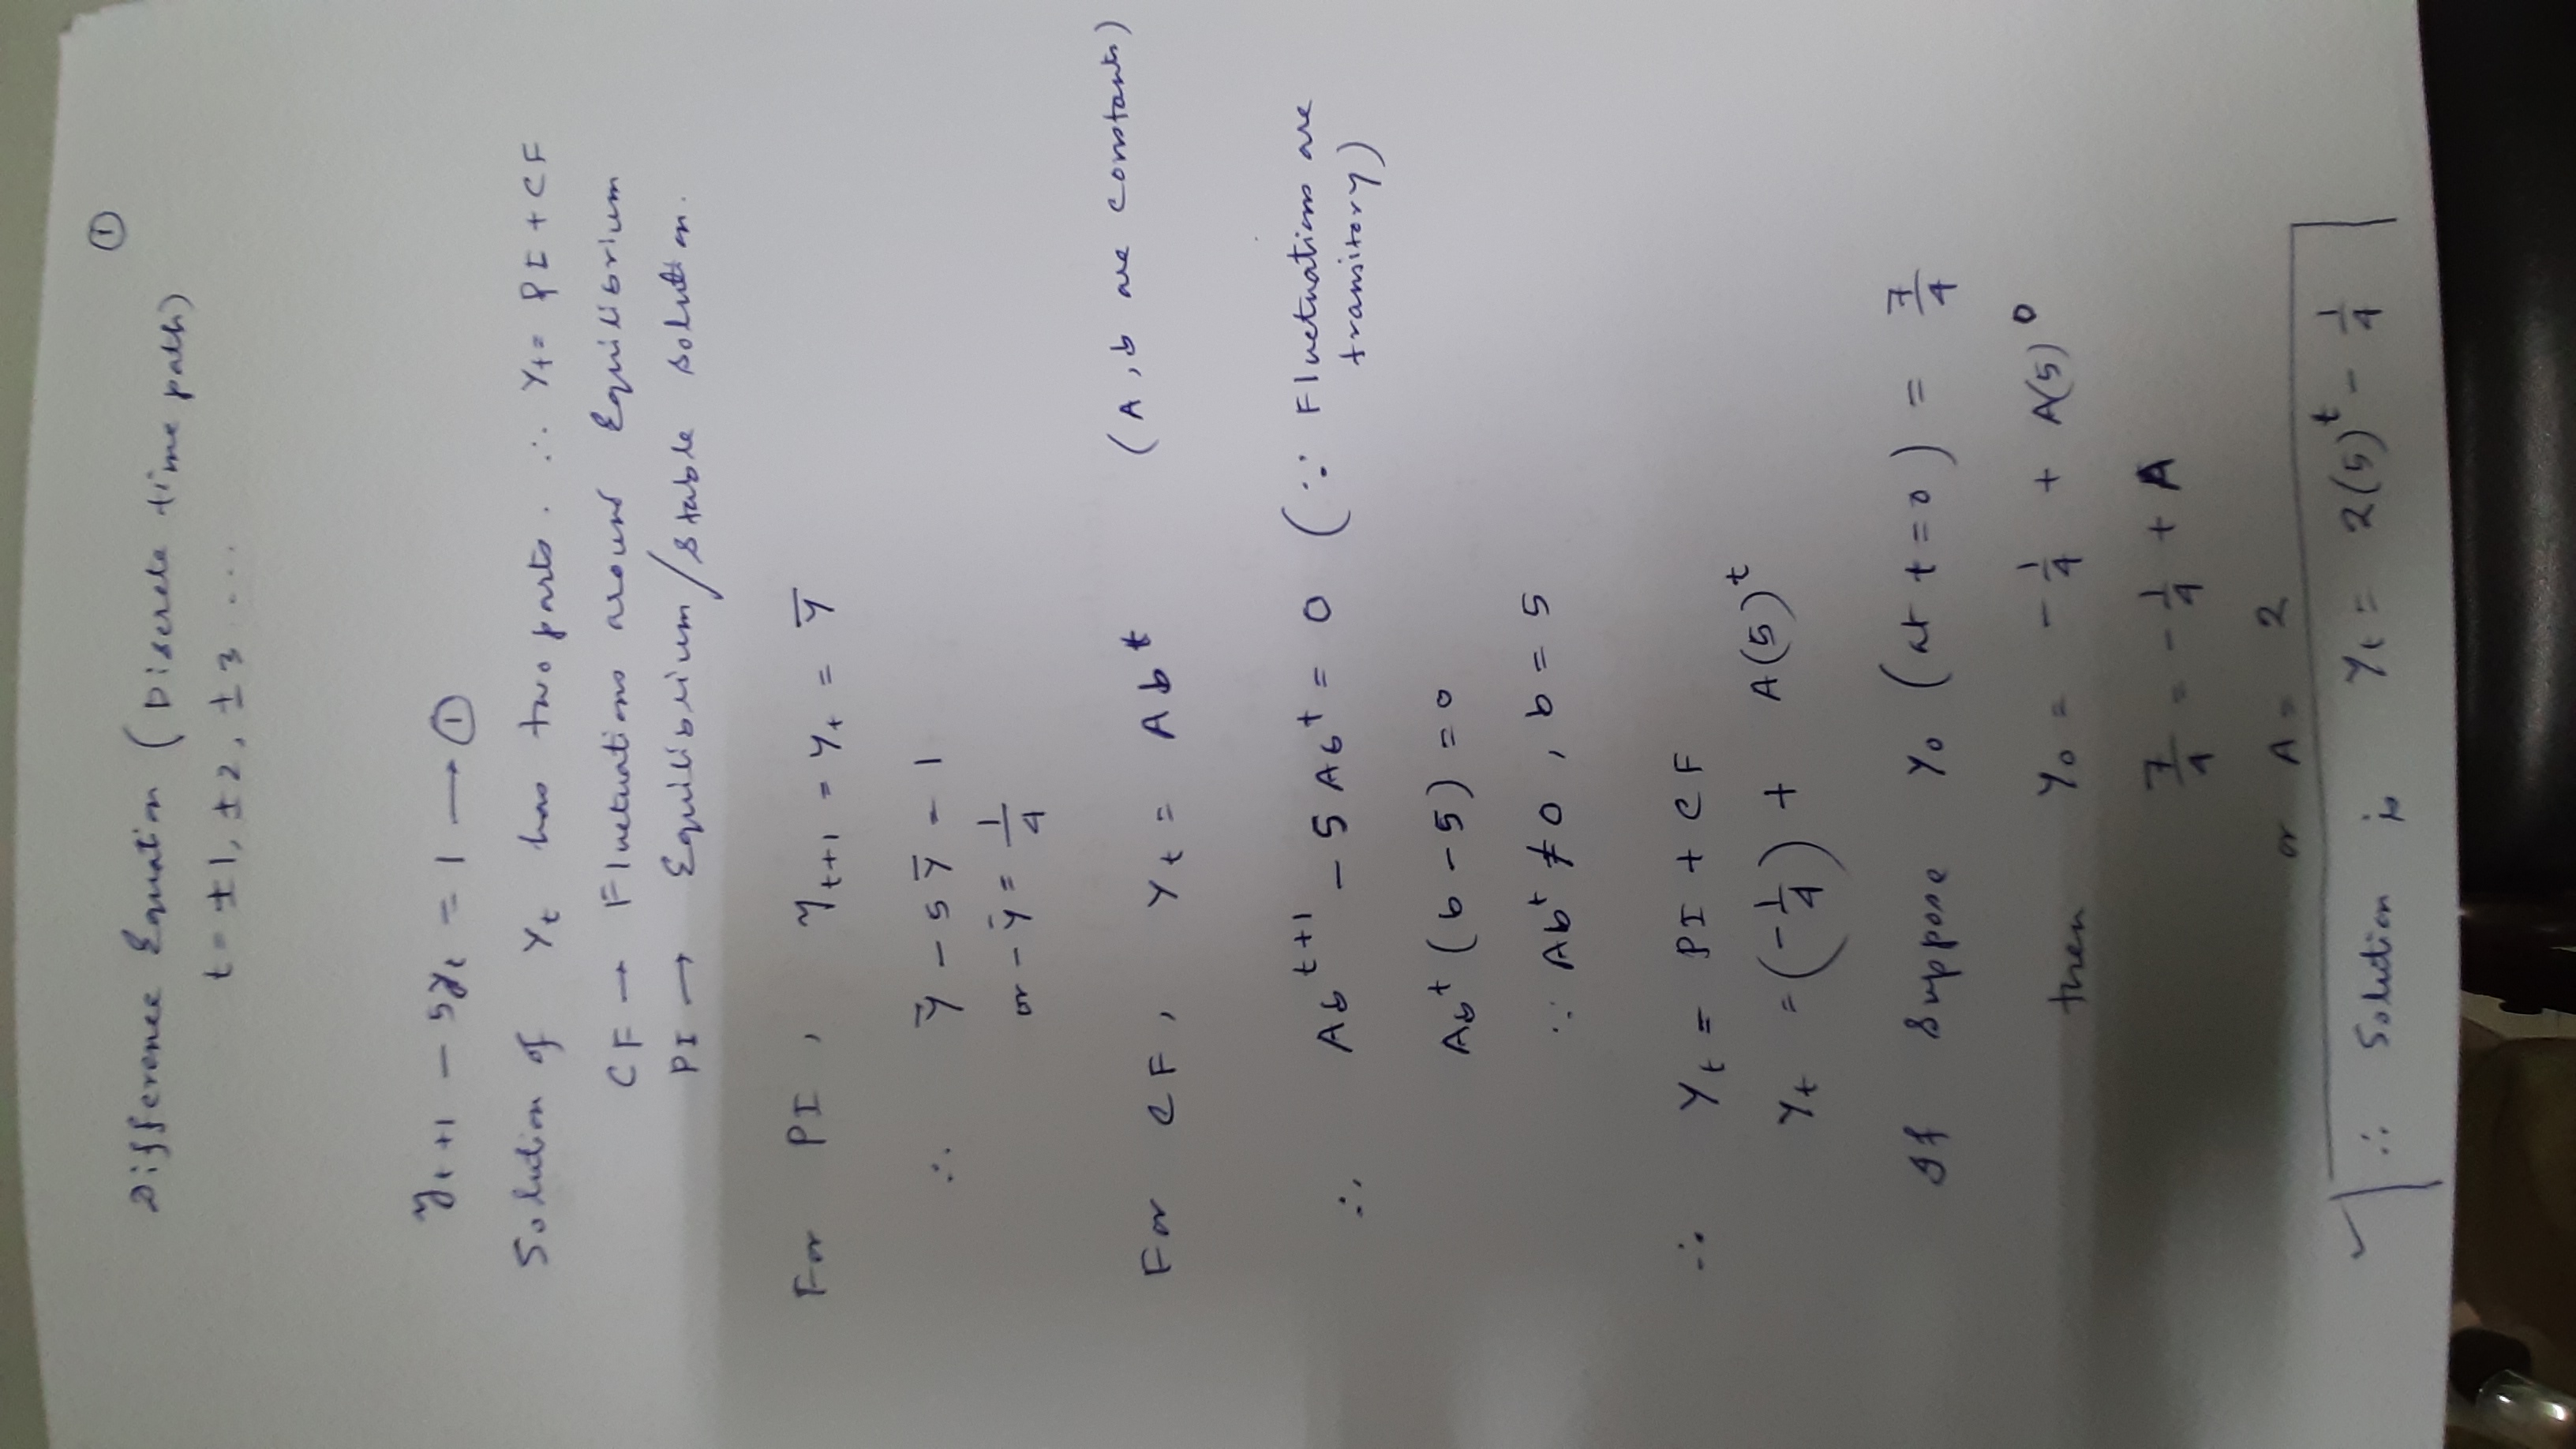 ①
Difference Equation (Discrete time path)
t = ±1, ±2, ±3 ...
y_{t+1} - 5y_t = 1 → ①
Solution of Y_t has two parts. ∴ Y_t = PI + CF
CF → Fluctuations around Equilibrium
PI → Equilibrium/Stable solution.
For PI, y_{t+1} = y_t = ȳ
∴ ȳ - 5ȳ = 1
or - ȳ = 1/4
For CF, Y_t = Ab^t (A, b are constants)
∴ Ab^{t+1} - 5Ab^t = 0 (∵ Fluctuations are
transitory)
Ab^t (b - 5) = 0
∵ Ab^t ≠ 0, b = 5
∴ Y_t = PI + CF
Y_t = (-1/4) + A(5)^t
If suppose Y_0 (at t = 0) = 7/4
then Y_0 = -1/4 + A(5)^0
7/4 = -1/4 + A
or A = 2
∴ Solution is Y_t = 2(5)^t - 1/4